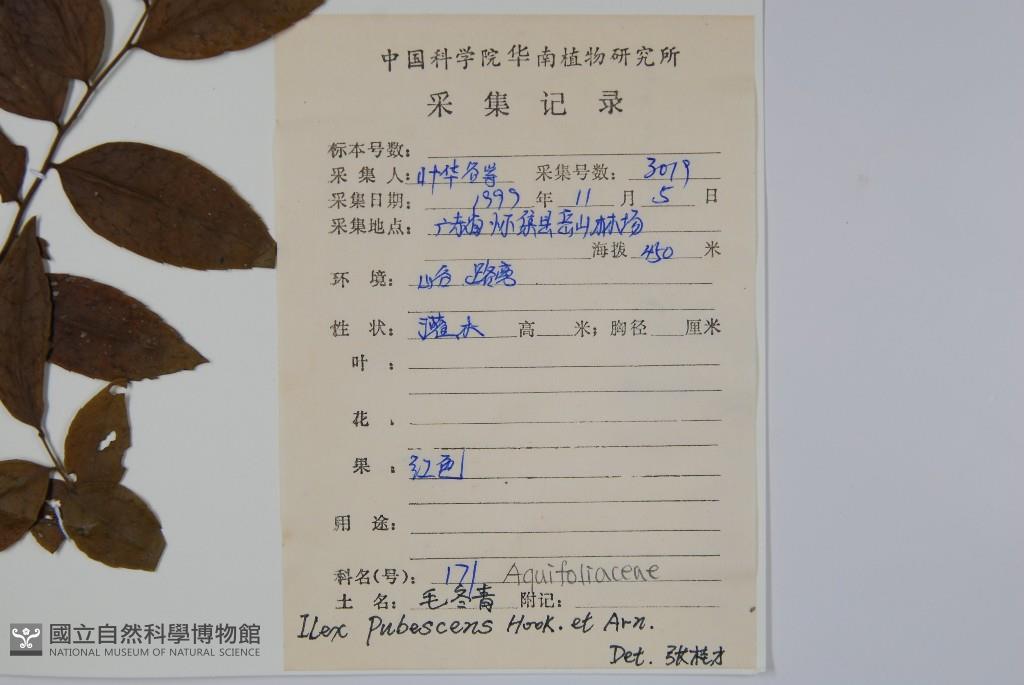 中国科学院华南植物研究所
采集记录
标本号数：
采集人：叶华谷等 采集号数：3079
采集日期：1999年11月5日
采集地点：广东省怀集县岳山林场
海拨 450 米
环境：山谷 路旁
性状：灌木 高 米；胸径 厘米
叶：
花：
果：红色
用途：
科名(号)：171 Aquifoliaceae
土名：毛冬青 附记：
Ilex Pubescens Hook. et Arn.
Det. 张桂才
國立自然科學博物館
NATIONAL MUSEUM OF NATURAL SCIENCE